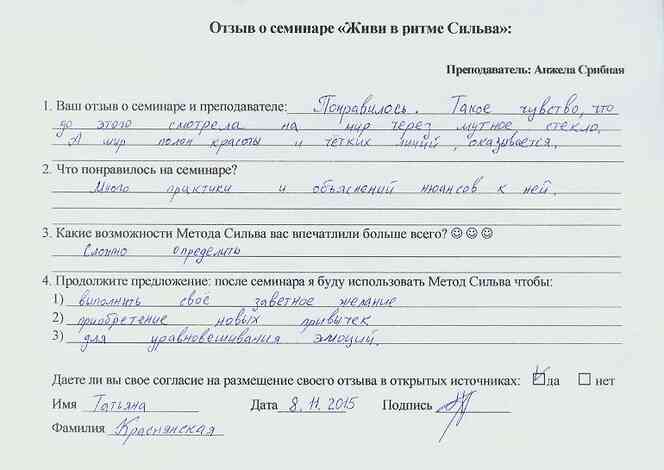 Отзыв о семинаре «Живи в ритме Сильва»:
Преподаватель: Анжела Срибная
1. Ваш отзыв о семинаре и преподавателе: Понравилось. Такое чувство, что
до этого смотрела на мир через мутное стекло.
А мир полон красоты и четких линий, оказывается.
2. Что понравилось на семинаре?
Много практики и объяснений нюансов к ней.
3. Какие возможности Метода Сильва вас впечатлили больше всего? ☺ ☺ ☺
Сложно определить
4. Продолжите предложение: после семинара я буду использовать Метод Сильва чтобы:
1) выполнить своё заветное желание
2) приобретение новых привычек
3) для уравновешивания эмоций.
Даете ли вы свое согласие на размещение своего отзыва в открытых источниках: ☑ да ☐ нет
Имя Татьяна Дата 8.11.2015 Подпись
Фамилия Краснянская